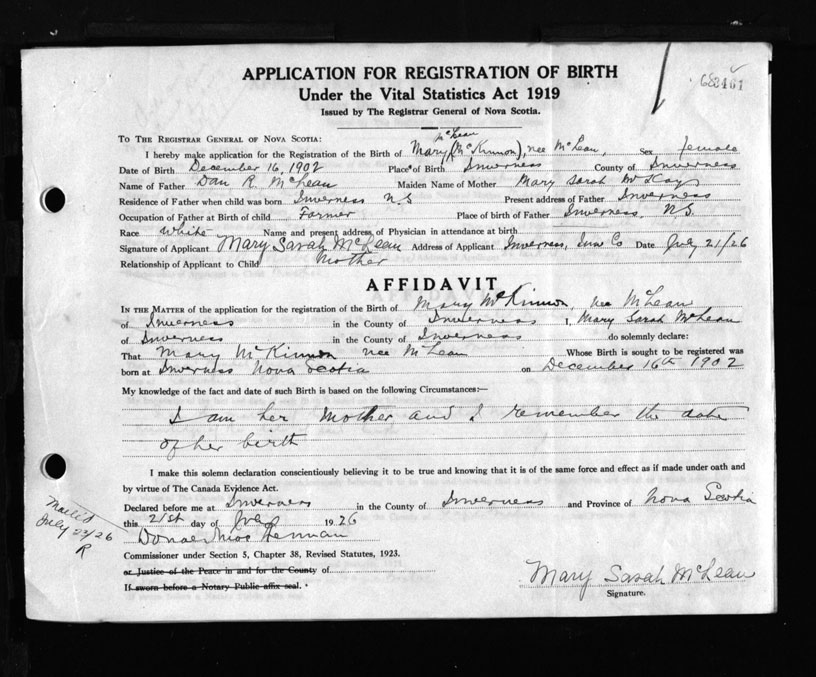 APPLICATION FOR REGISTRATION OF BIRTH
Under the Vital Statistics Act 1919
Issued by The Registrar General of Nova Scotia.
To The Registrar General of Nova Scotia:
McLean
I hereby make application for the Registration of the Birth of Mary (McKinnon), nee McLean, Sex female
Date of Birth December 16, 1902 Place of Birth Inverness County of Inverness
Name of Father Dan R. McLean Maiden Name of Mother Mary Sarah McKay
Residence of Father when child was born Inverness NS Present address of Father Inverness
Occupation of Father at Birth of child Farmer Place of birth of Father Inverness, N.S.
Race White Name and present address of Physician in attendance at birth
Signature of Applicant Mary Sarah McLean Address of Applicant Inverness, Inve Co Date July 21/26
Relationship of Applicant to Child Mother
AFFIDAVIT
In the Matter of the application for the registration of the Birth of Mary McKinnon, nee McLean
of Inverness in the County of Inverness, Mary Sarah McLean
of Inverness in the County of Inverness do solemnly declare:
That Mary McKinnon nee McLean Whose Birth is sought to be registered was
born at Inverness Nova Scotia on December 16th 1902
My knowledge of the fact and date of such Birth is based on the following Circumstances:—
I am her mother and I remember the date
of her birth
I make this solemn declaration conscientiously believing it to be true and knowing that it is of the same force and effect as if made under oath and
by virtue of The Canada Evidence Act.
Declared before me at Inverness in the County of Inverness and Province of Nova Scotia
this 21st day of July 1926
Commissioner under Section 5, Chapter 38, Revised Statutes, 1923.
or Justice of the Peace in and for the County of
If sworn before a Notary Public affix seal.
Mary Sarah McLean
Signature.
Mailed
July 22/26
R